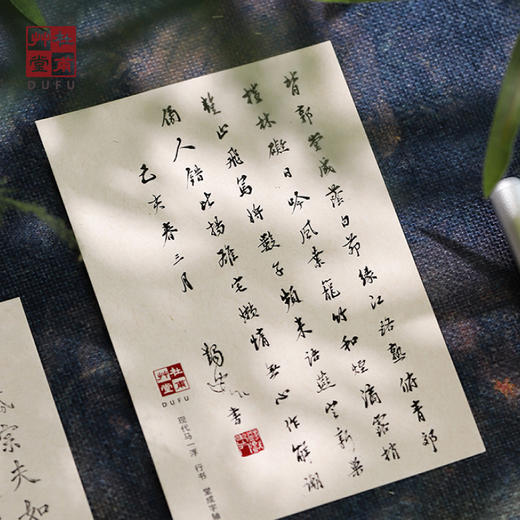 杜甫
艸堂
DUFU
背郭堂成蔭白茅緣江路熟俯青郊
榿林礙日吟風葉籠竹和煙滴露梢
暫止飛烏將數子頻來語燕定新巢
傍人錯比揚雄宅懶惰無心作解嘲
己亥春三月
書
杜甫
艸堂
DUFU
现代马一浮 行书 堂成字轴
宗夫如